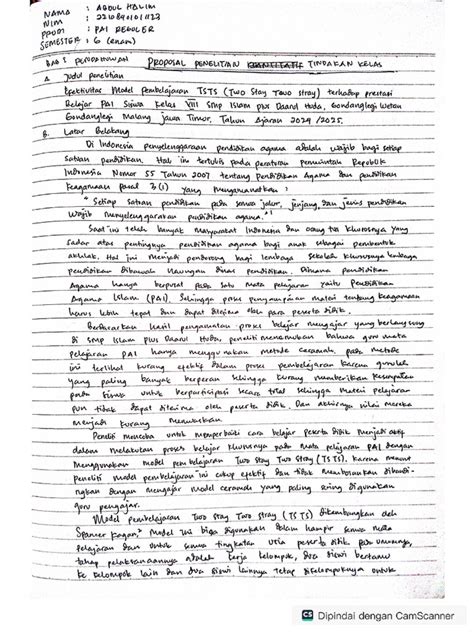 NAMA : ABDUL HALIM
NIM : 22108901011123
PRODI : PAI REGULER
SEMESTER : 6 (enam)
BAB I PENDAHULUAN
PROPOSAL PENELITIAN KUANTITATIF TINDAKAN KELAS
A. Judul penelitian
Efektivitas Model Pembelajaran TSTS (Two Stay Two Stray) terhadap prestasi
Belajar PAI Siswa Kelas VIII SMP Islam plus Daarul Huda, Gondanglegi Wetan
Gondanglegi Malang Jawa Timur, Tahun Ajaran 2024/2025.
B. Latar Belakang
Di Indonesia penyelenggaraan pendidikan agama adalah wajib bagi setiap
satuan pendidikan. Hal ini tertulis pada peraturan pemerintah Republik
Indonesia Nomor 55 Tahun 2007 tentang Pendidikan Agama dan pendidikan
Keagamaan pasal 3 (1) yang mengamanatkan :
"Setiap satuan pendidikan pada semua jalur, jenjang, dan jenis pendidikan
Wajib menyelenggarakan pendidikan agama."
Saat ini telah banyak masyarakat Indonesia dan orang tua khususnya yang
sadar atas pentingnya pendidikan agama bagi anak sebagai pembentuk
akhlak. Hal ini menjadi pendorong bagi lembaga sekolah khususnya lembaga
pendidikan dibawah naungan dinas pendidikan. Dimana pendidikan
Agama hanya berpusat pada satu mata pelajaran yaitu Pendidikan
Agama Islam (PAI). Sehingga proses penyampaian materi tentang keagamaan
harus lebih tepat dan dapat diterima oleh para peserta didik.
Berdasarkan hasil pengamatan proses belajar mengajar yang berlangsung
di SMP Islam plus Daarul Huda, peneliti menemukan bahwa guru mata
pelajaran PAI hanya menggunakan metode ceramah, pada metode
ini terlihat kurang efektif dalam proses pembelajaran karena gurulah
yang paling banyak berperan sehingga kurang memberikan kesempatan
pada siswa untuk berpartisipasi secara total sehingga materi pelajaran
pun tidak dapat diterima oleh peserta didik. Dan akhirnya nilai mereka
menjadi kurang memuaskan.
Peneliti mencoba untuk memperbaiki cara belajar peserta didik menjadi aktif
dalam melakukan proses belajar khususnya pada mata pelajaran PAI dengan
menggunakan model pembelajaran Two Stay Two Stray (TSTS). Karena menurut
peneliti model pembelajaran ini cukup efektif dan tidak membosankan dibandi-
ngkan dengan mengajar model ceramah yang paling sering digunakan
guru pengajar.
Model pembelajaran Two Stay Two Stray (TSTS) dikembangkan oleh
Spencer Kagan. Model ini bisa digunakan dalam hampir semua mata
pelajaran dan untuk semua tingkatan usia peserta didik. pada umumnya,
tahap pelaksanaannya adalah kerja kelompok, dua siswi bertamu
ke kelompok lain dan dua siswi lainnya tetap dikelompoknya untuk
CS Dipindai dengan CamScanner